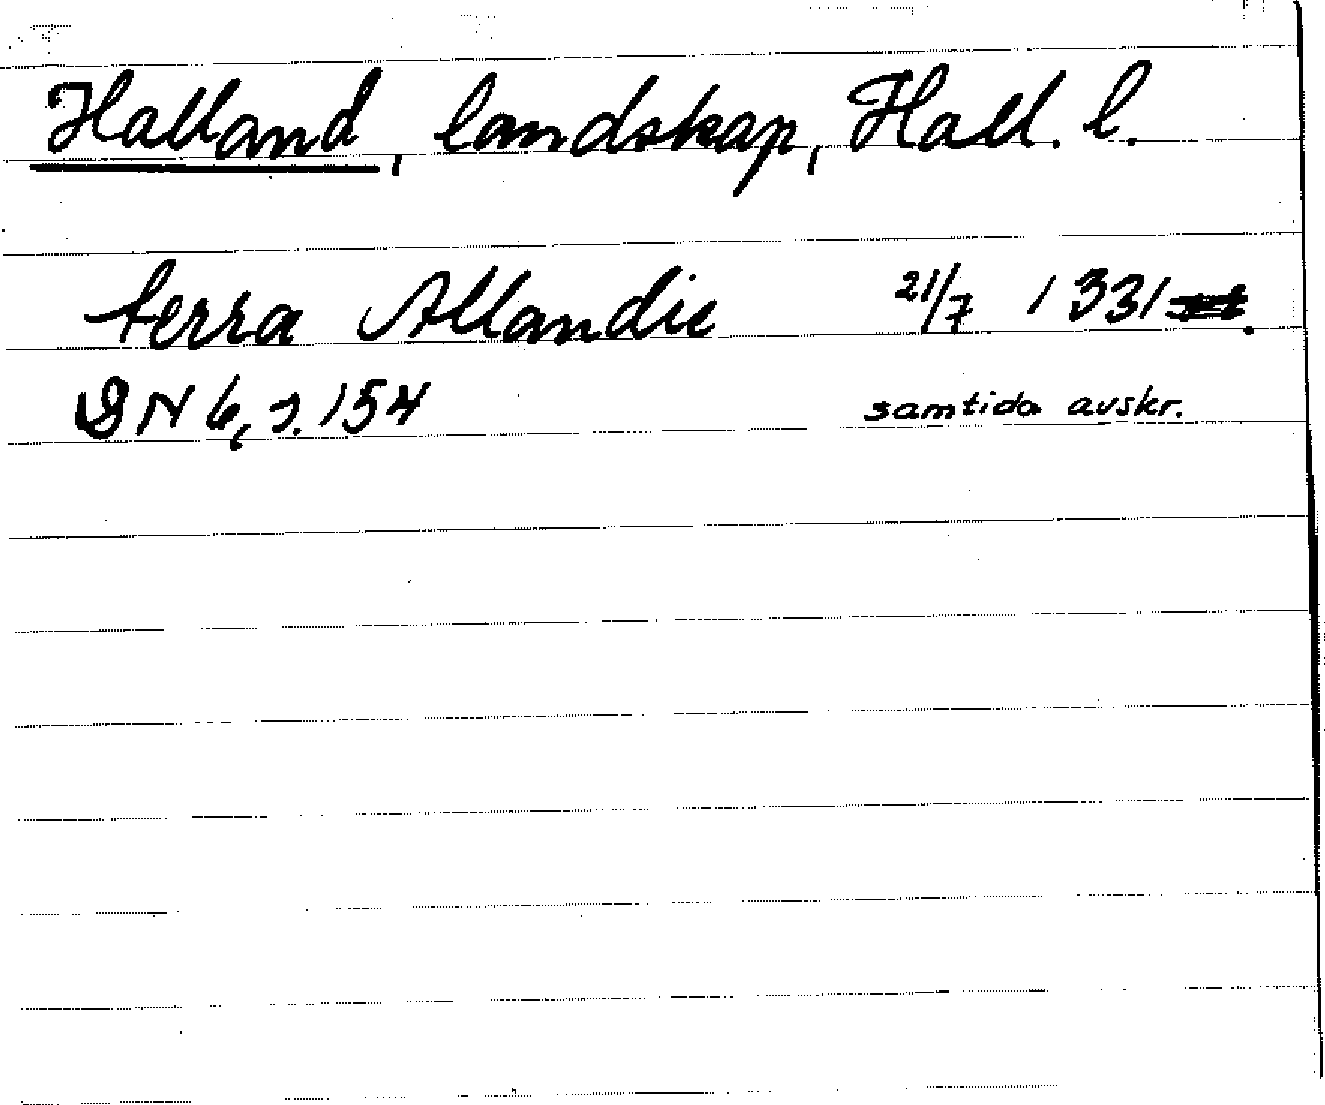 Halland, landskap, Hall. l.
terra Allandie 21/7 1331.
DN 6, s. 154 samtida avskr.